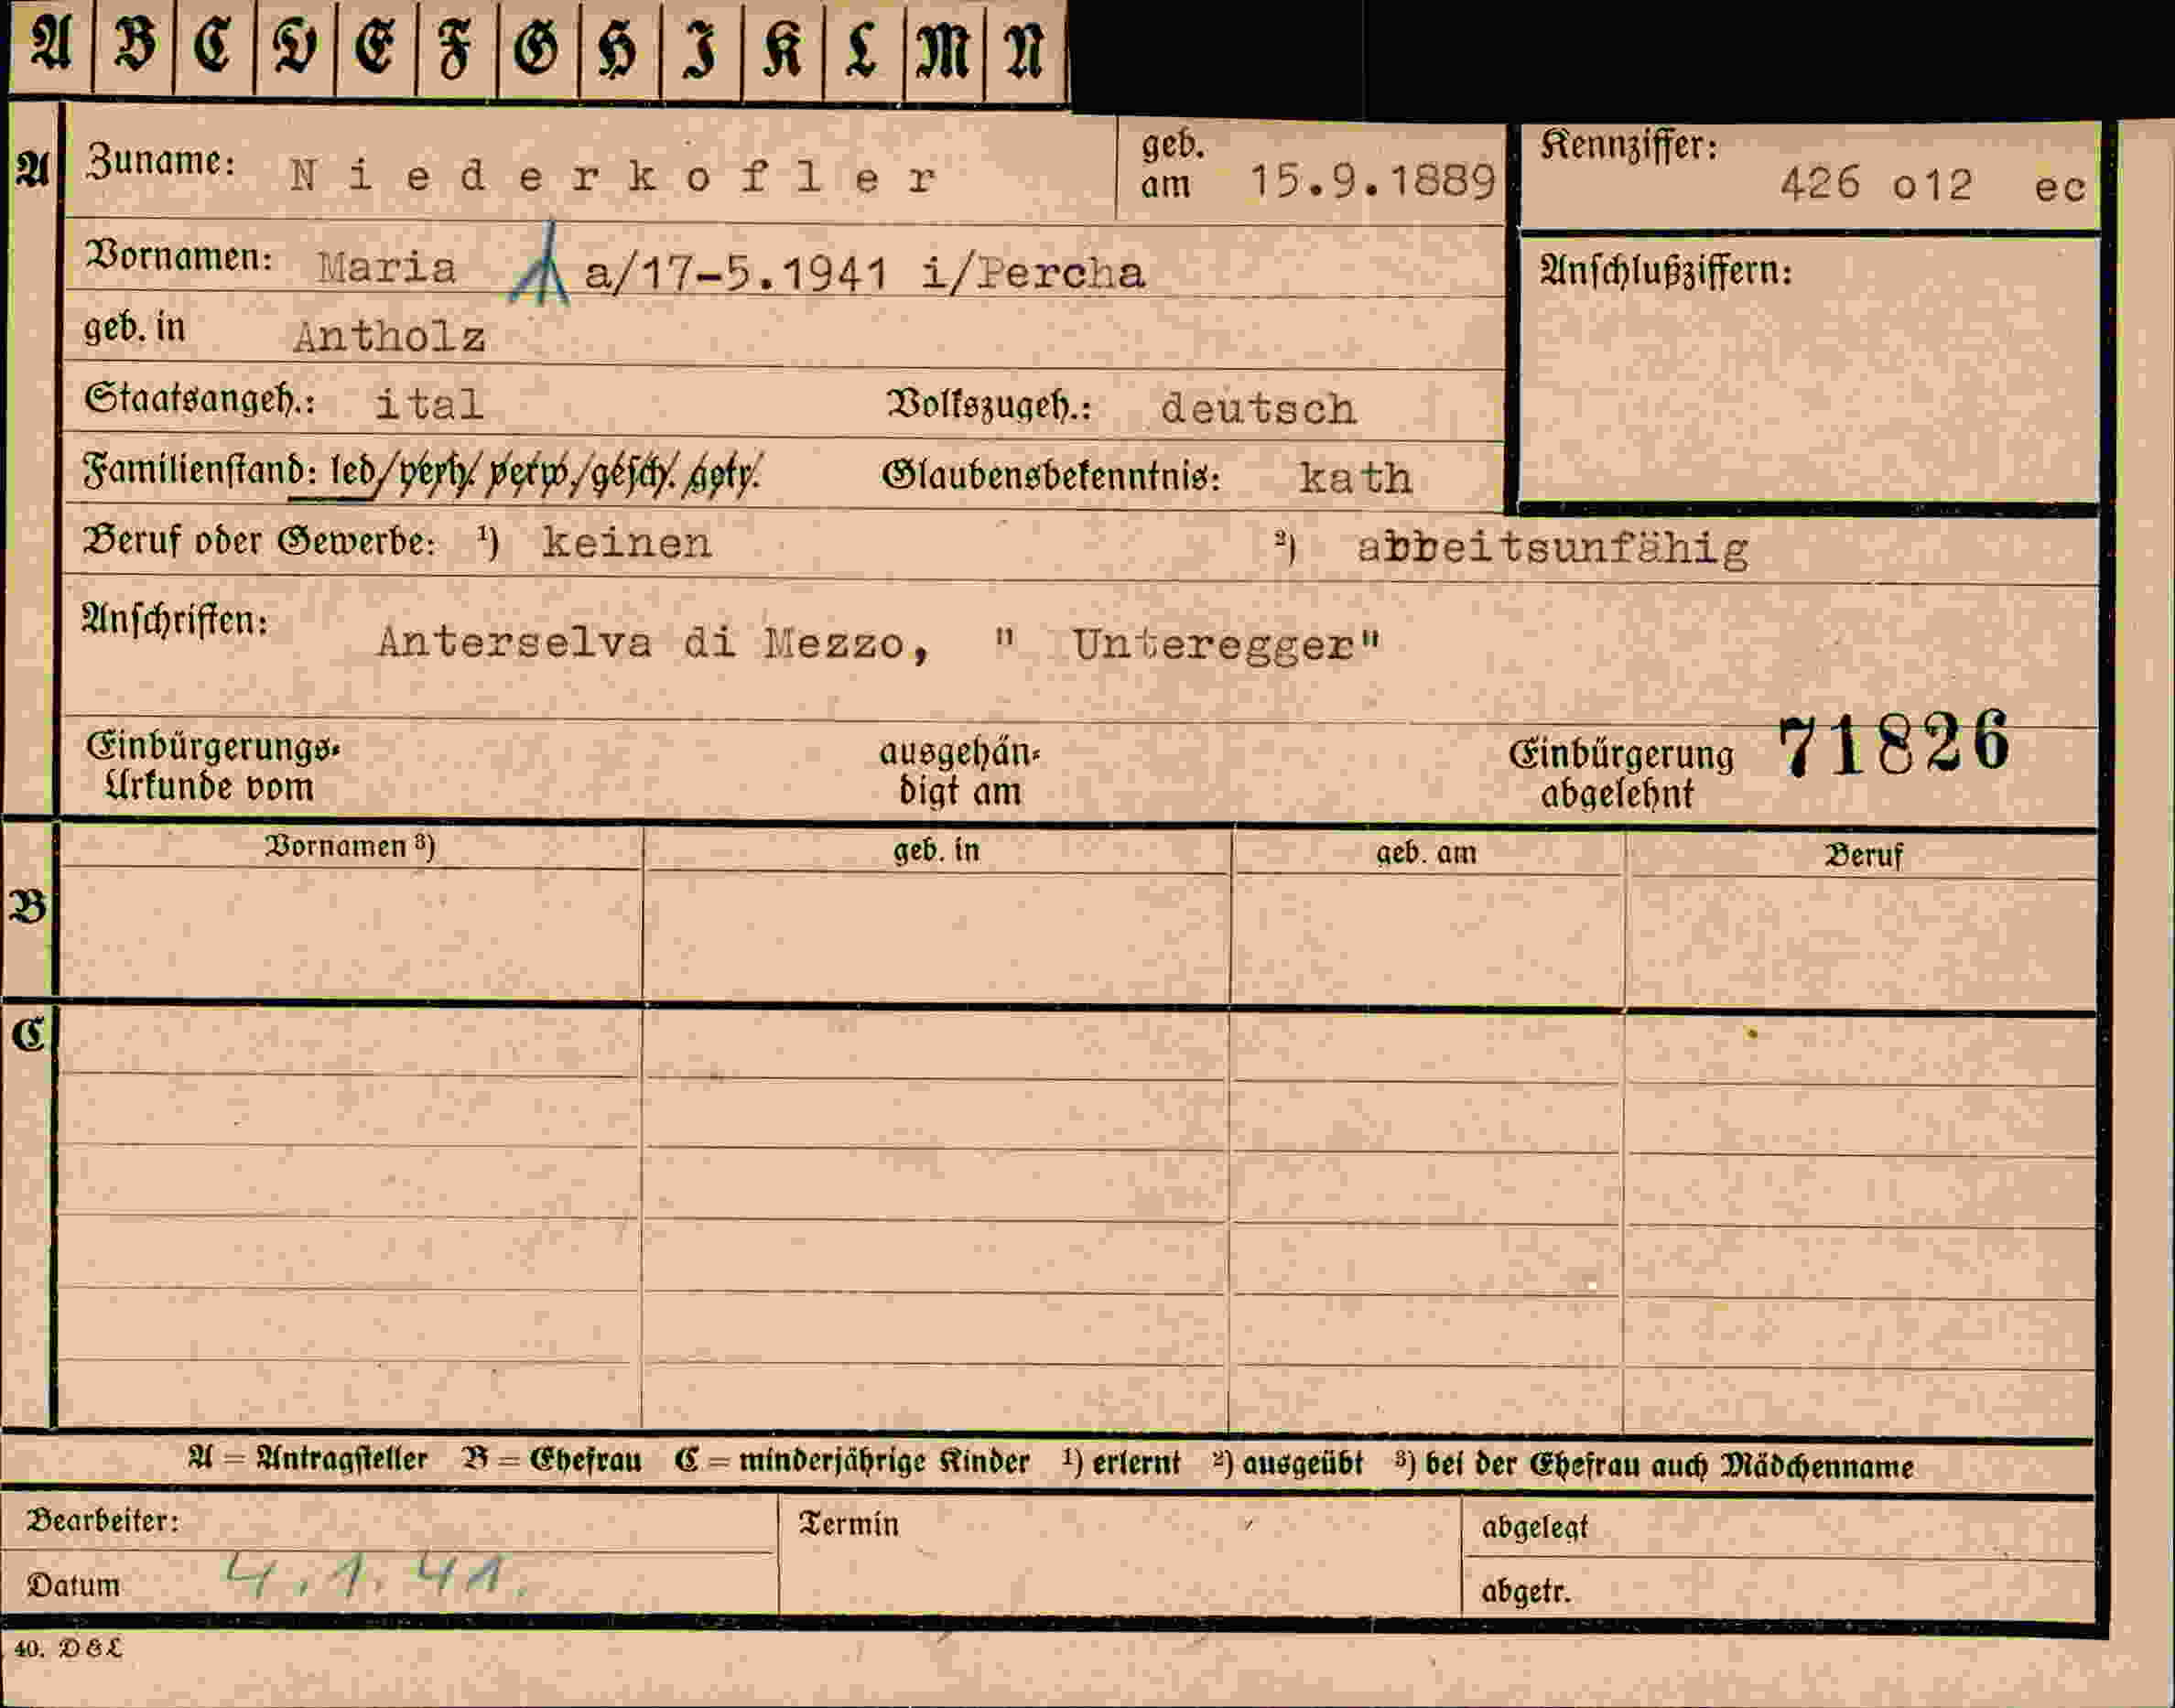 A B C D E F G H I K L M N
A Zuname: Niederkofler geb. am 15.9.1889 Kennziffer: 426 o12 ec
Vornamen: Maria a/17-5.1941 i/Percha Anschlußziffern:
geb. in Antholz
Staatsangeh.: ital Volkszugeh.: deutsch
Familienstand: led/verh/verw/gesch/getr. Glaubensbekenntnis: kath
Beruf oder Gewerbe: ¹) keinen ²) abbeitsunfähig
Anschriften: Anterselva di Mezzo, " Unteregger"
Einbürgerungs-Urkunde vom ausgehän-digt am Einbürgerung abgelehnt 71826
Vornamen ³) geb. in geb. am Beruf
B
C
A = Antragsteller B = Ehefrau C = minderjährige Kinder ¹) erlernt ²) ausgeübt ³) bei der Ehefrau auch Mädchenname
Bearbeiter: Termin abgelegt
Datum 4.1.41. abgetr.
40. DEL